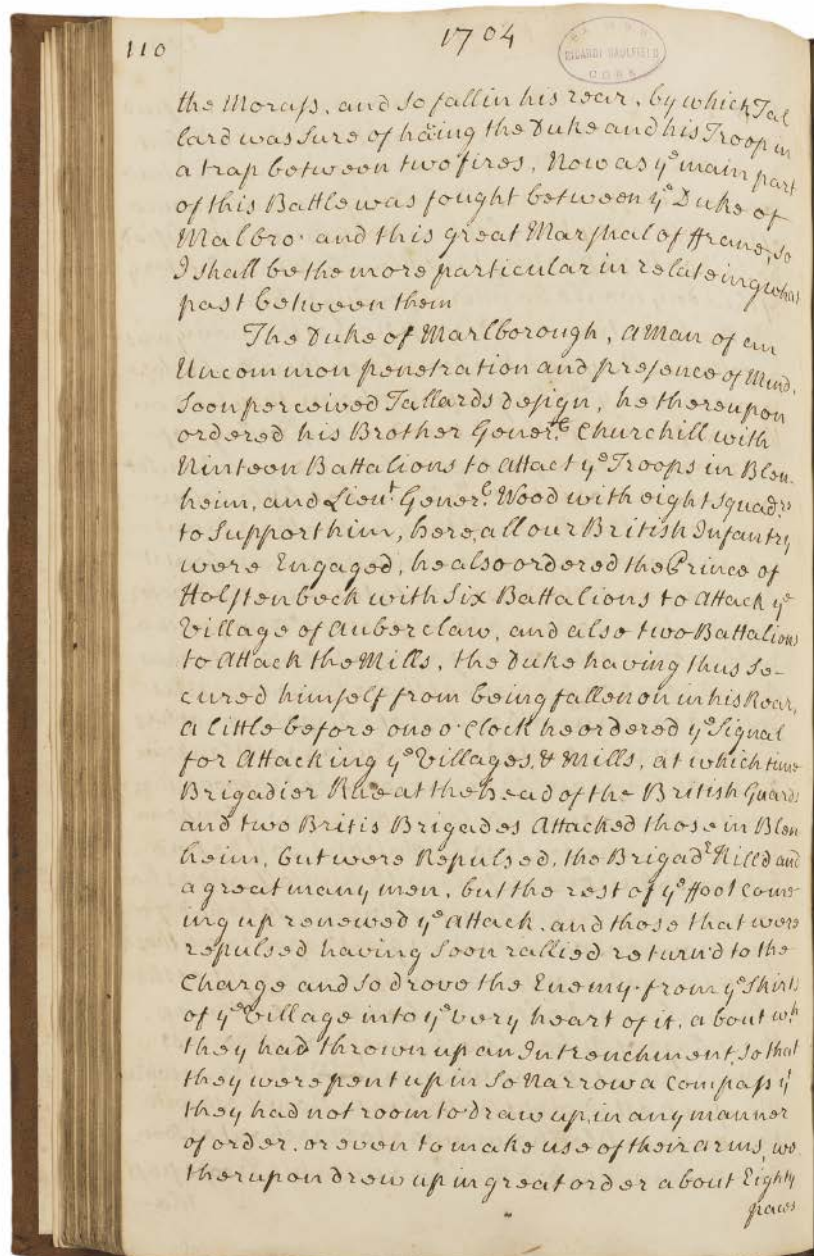 110
1704
RICARDI CAULFIELD
CORK
the Morass, and so fall in his rear, by which Tal
lard was sure of haīng the Duke and his Troop in
a trap between two fires, Now as yᵉ main part
of this Battle was fought between yᵉ Duke of
Malbro. and this great Marshal of ffrance, so
I shall be the more particular in relateing what
past between them
The Duke of Marlborough, a Man of an
Uncommon penetration and presence of Mind.
Soon perceived Tallards design, he thereupon
ordered his Brother Generˡ Churchill with
Ninteen Battalions to Attact yᵉ Troops in Blen-
heim, and Lieuᵗ Generˡ Wood with eight squadʳˢ
to Support him, here, all our British Infantry
were Engaged, he also ordered the Prince of
Holstenbeck with Six Battalions to Attack yᵉ
Village of Auberclaw, and also two Battalions
to Attack the Mills, the Duke having thus se-
cured himself from being fallen on in his Rear,
a little before one o'Clock he ordered yᵉ Signal
for Attacking yᵉ Villages, & Mills, at which time
Brigadier Rue at the head of the British Guards
and two Britis Brigades Attacked those in Blen
heim, but were Repulsed, the Brigadʳ Killd and
a great many men, but the rest of yᵉ ffoot come
ing up renewed yᵉ Attack. and those that were
repulsed having soon rallied return'd to the
Charge and so drove the Enemy from yᵉ Skirts
of yᵉ Village into yᵉ very heart of it, about wʰ
they had thrown up an Intrenchment, so that
they were pent up in so Narrow a Compass yᵗ
they had not room to draw up, in any manner
of order, or even to make use of their arms, we
therupon drew up in great order about Eighty
paces